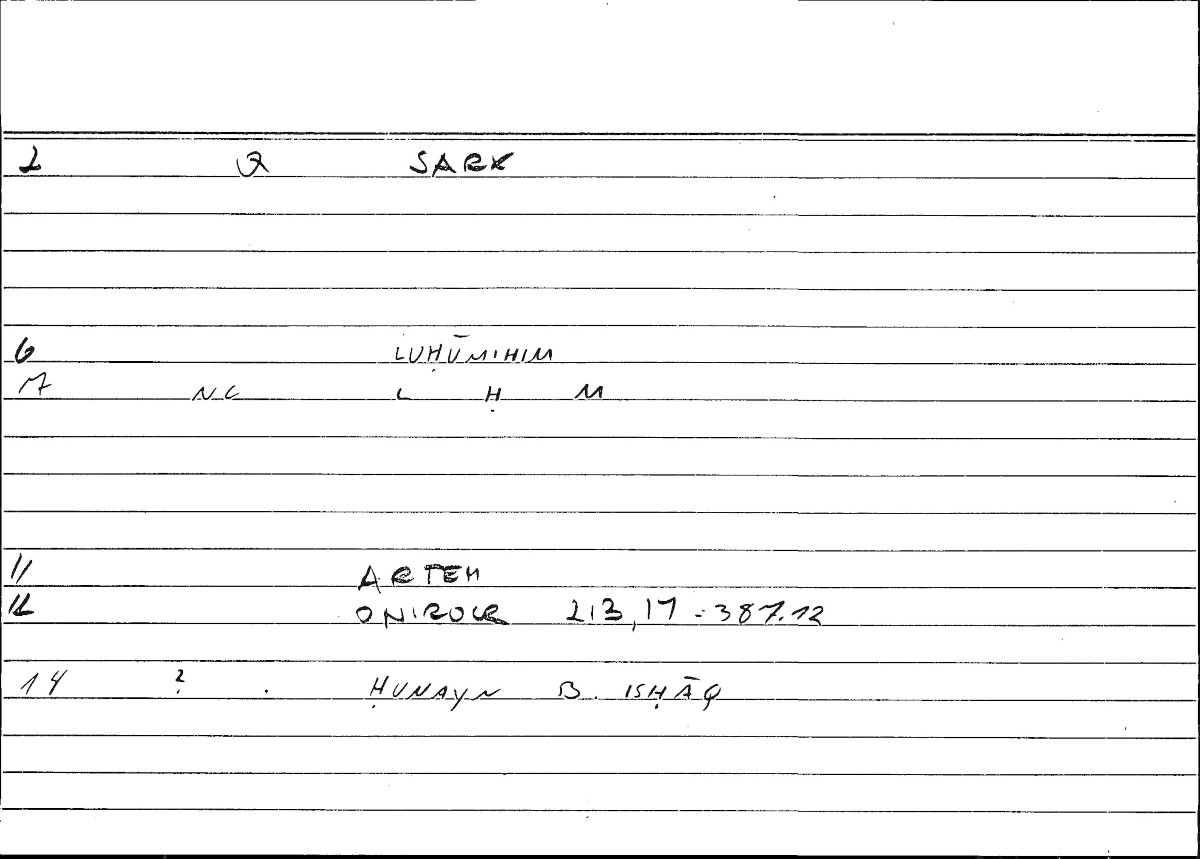 2 Q SARX
6 LUḤŪMIHIM
7 NC L Ḥ M
11 ARTEM
12 ONIROCR 213,17 = 387.12
14 ? . ḤUNAYN B. ISḤĀQ